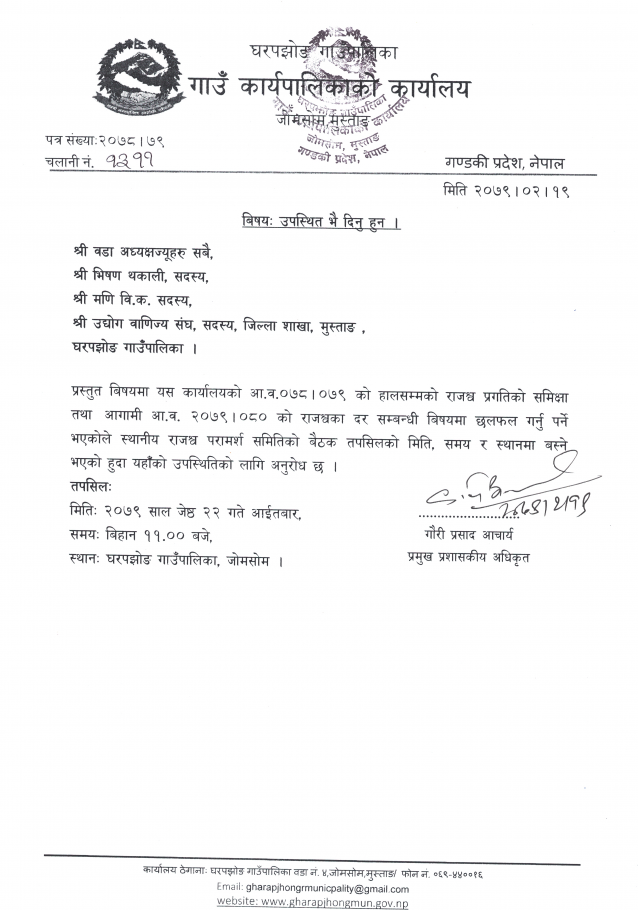 घरपझोङ गाउँपालिका
गाउँ कार्यपालिकाको कार्यालय
जोमसोम, मुस्ताङ
पत्र संख्याः२०७८।७९
चलानी नं. १३११
गण्डकी प्रदेश, नेपाल
मिति २०७९।०२।१९
बिषयः उपस्थित भै दिनु हुन ।
श्री वडा अध्यक्षज्यूहरु सबै,
श्री भिषण थकाली, सदस्य,
श्री मणि बि.क. सदस्य,
श्री उद्योग वाणिज्य संघ, सदस्य, जिल्ला शाखा, मुस्ताङ ,
घरपझोङ गाउँपालिका ।
प्रस्तुत बिषयमा यस कार्यालयको आ.व.०७८।०७९ को हालसम्मको राजश्व प्रगतिको समिक्षा
तथा आगामी आ.व. २०७९।०८० को राजश्वका दर सम्बन्धी बिषयमा छलफल गर्नु पर्ने
भएकोले स्थानीय राजश्व परामर्श समितिको बैठक तपसिलको मिति, समय र स्थानमा बस्ने
भएको हुदा यहाँको उपस्थितिको लागि अनुरोध छ ।
तपसिलः
मितिः २०७९ साल जेष्ठ २२ गते आईतबार,
समयः बिहान ११.०० बजे,
स्थानः घरपझोङ गाउँपालिका, जोमसोम ।
गौरी प्रसाद आचार्य
प्रमुख प्रशासकीय अधिकृत
कार्यालय ठेगानाः घरपझोङ गाउँपालिका वडा नं. ४,जोमसोम,मुस्ताङ/ फोन नं. ०६९-४४००१६
Email: gharapjhongrmunicpality@gmail.com
website: www.gharapjhongmun.gov.np